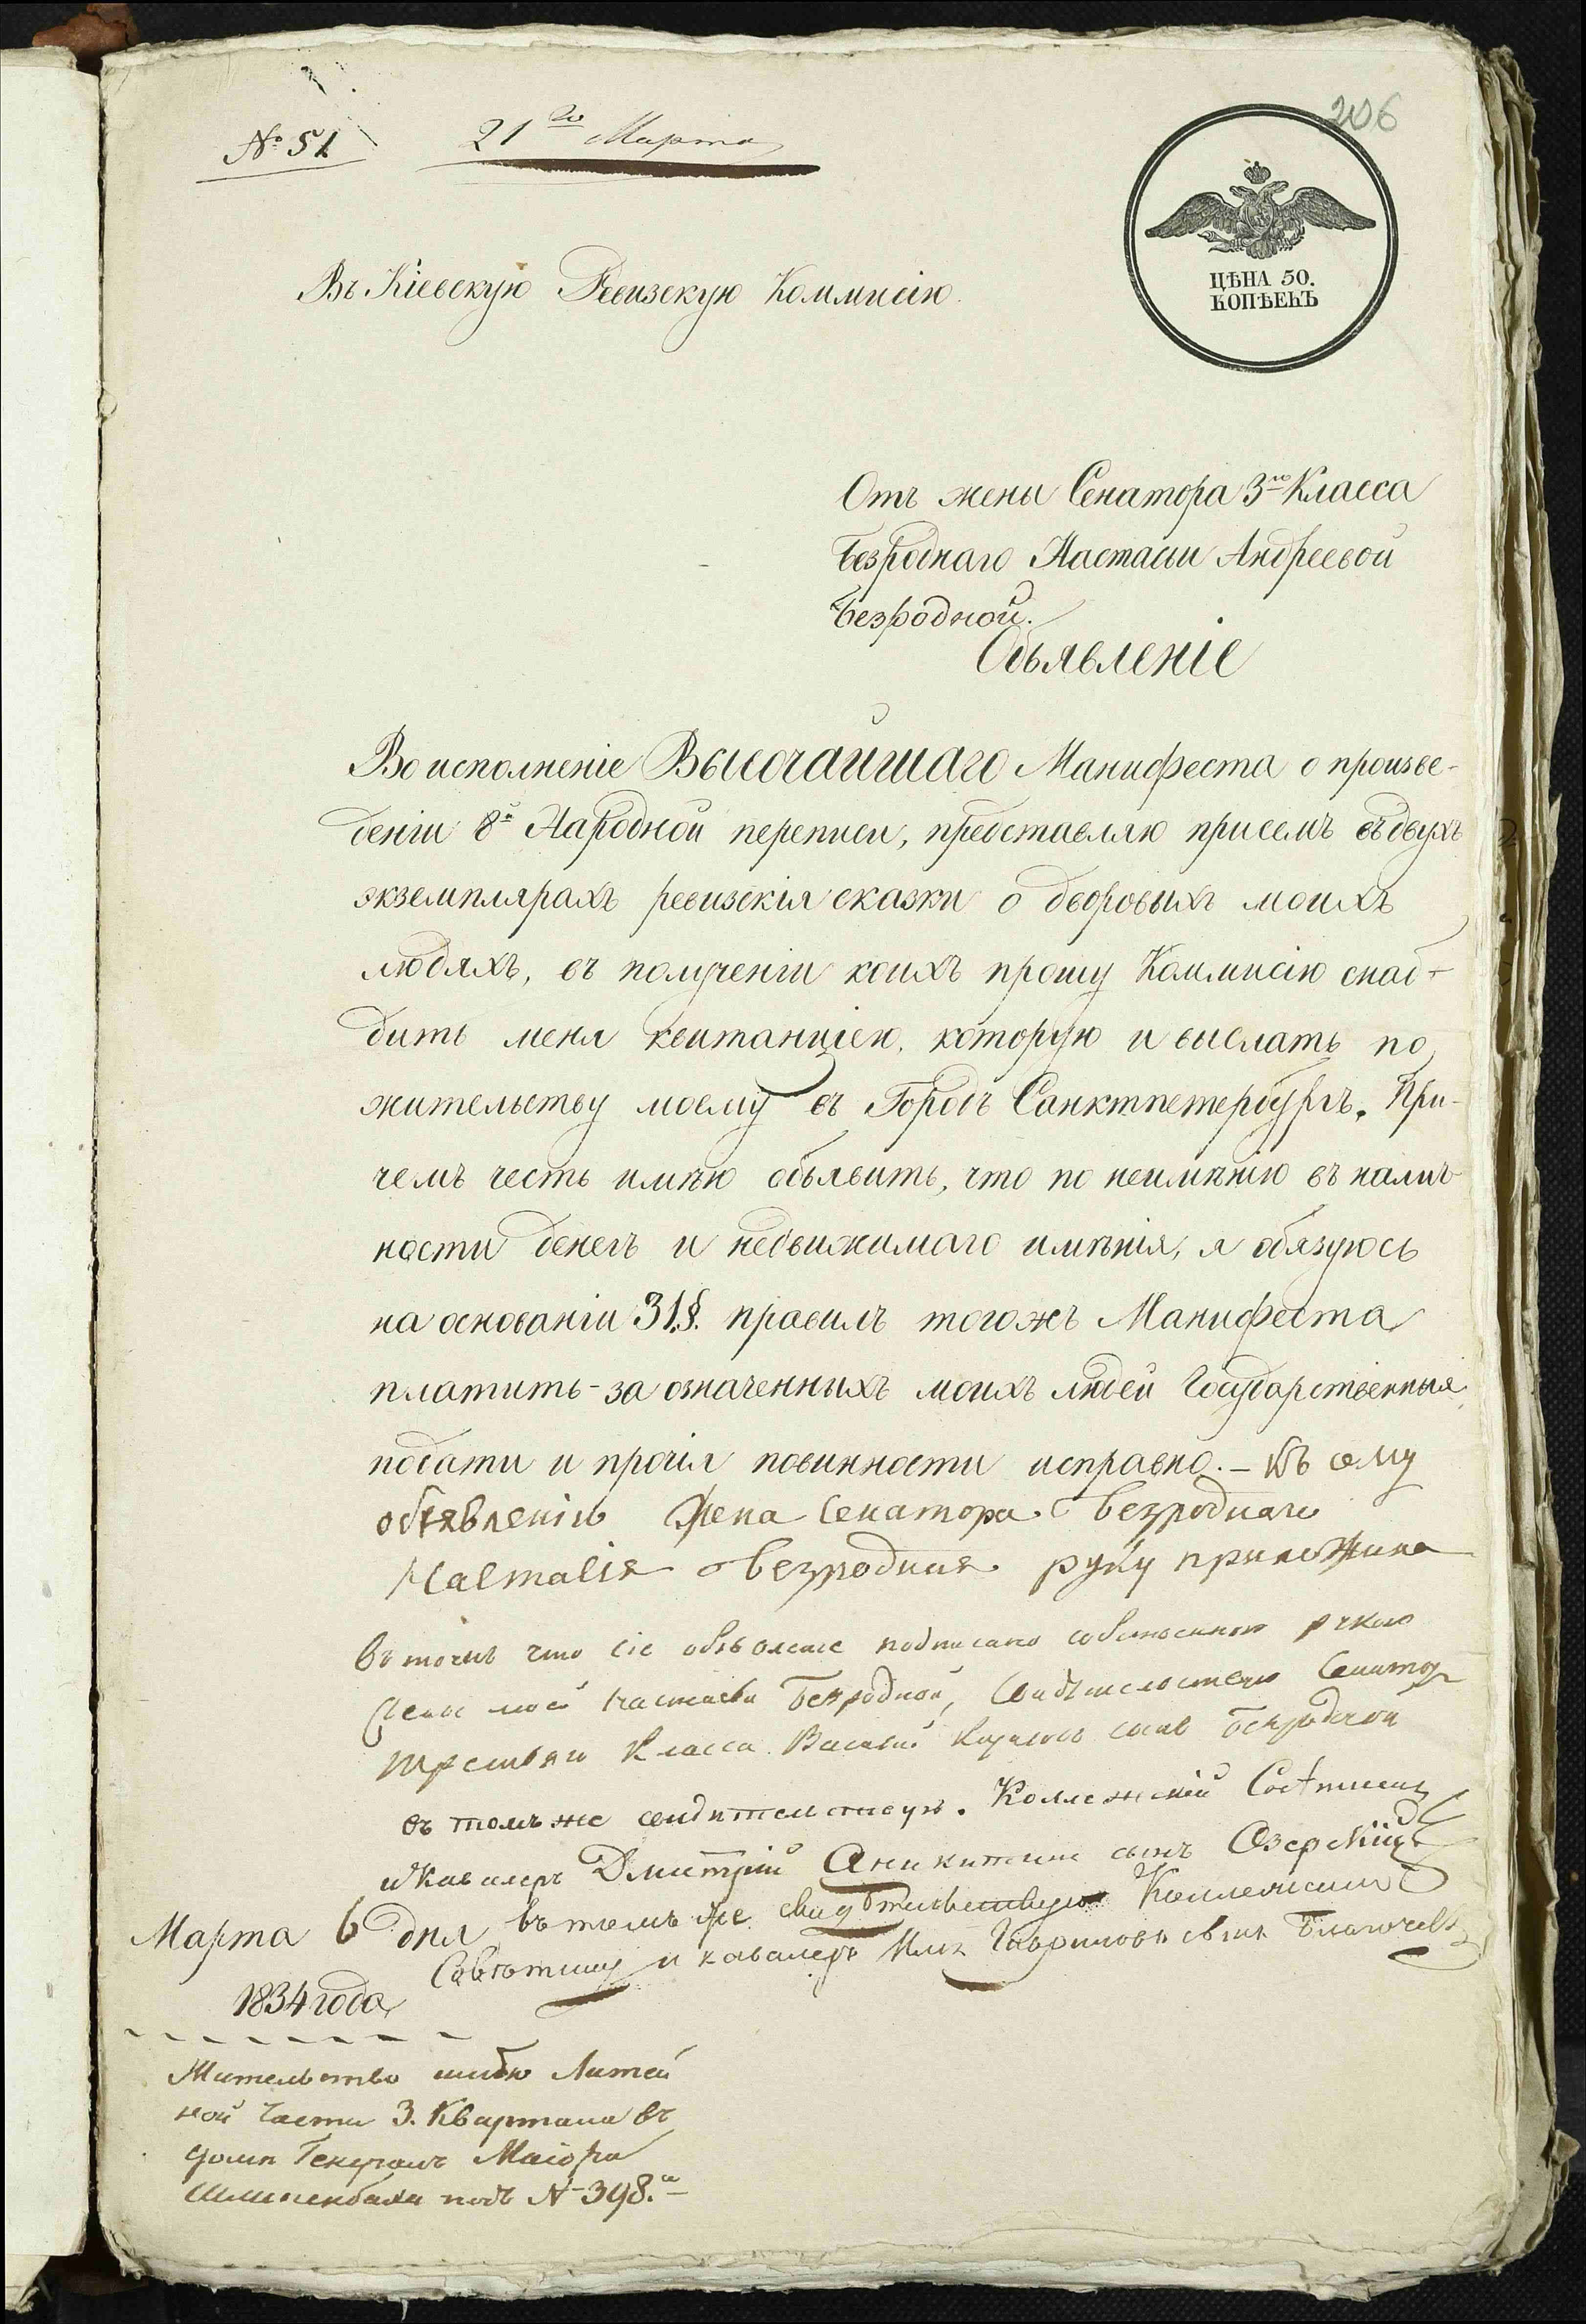 206
№ 51
21го Марта
ЦѢНА 50.
КОПѢЕКЪ
Въ Кіевскую Ревизскую Коммисію.
Отъ жены Сенатора 3го Класса
Безроднаго Настасьи Андреевой
Безродной.
Объявленіе
Во исполненіе Высочайшаго Манифеста о произве-
деніи 8й Народной переписи, представляю присемъ въ двухъ
экземплярахъ ревизскія сказки о дворовыхъ моихъ
людяхъ, въ полученіи коихъ прошу Коммисію снаб-
дить меня квитанціею, которую и выслать по
жительству моему въ Городъ Санктпетербургъ. При-
чемъ честь имѣю объявить, что по неимѣнію въ налич-
ности денегъ и недвижимаго имѣнія, я обязуюсь
на основаніи 31.§. правилъ тогожъ Манифеста
платить - за означенныхъ моихъ людей Государственныя
подати и прочія повинности исправно. - Къ сему
объявленію Жена Сенатора Безроднаго
Настасія Безродная руку приложила
Въ томъ что сіе объявленіе подписано собственною рукою
Жены моей Настасьи Безродной, Свидѣтельствую Сенаторъ
третьяго Класса Василій Кириловъ сынъ Безродной
въ томъ же свидѣтельствую. Коллежскій Совѣтникъ
и Кавалеръ Дмитрій Аникитинъ сынъ Озерскій
Марта 6 дня въ томъ же свидѣтельствую Коллежскій
Совѣтникъ и кавалеръ Илья Гавриловъ сынъ
1834 года
Жительство имѣю Литей
ной Части 3. Квартала въ
домѣ Генералъ Маіора
Шлипенбаха подъ № 398.